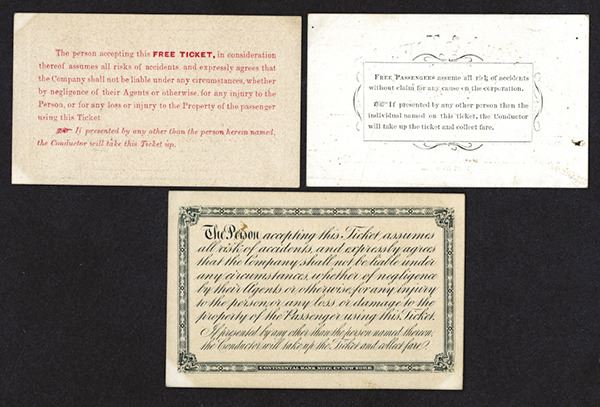 The person accepting this FREE TICKET, in consideration
thereof assumes all risks of accidents, and expressly agrees that
the Company shall not be liable under any circumstances, whether
by negligence of their Agents or otherwise, for any injury to the
Person, or for any loss or injury to the Property of the passenger
using this Ticket
☞ If presented by any other than the person herein named,
the Conductor will take this Ticket up.
FREE PASSENGERS assume all risk of accidents
without claim for any cause on the corporation.
☞ If presented by any other person than the
individual named on this ticket, the Conductor
will take up the ticket and collect fare.
The Person accepting this Ticket, assumes
all risk of accidents, and expressly agrees
that the Company shall not be liable under
any circumstances, whether of negligence
by their Agents or otherwise, for any injury
to the person, or any loss or damage to the
property of the Passenger using this Ticket.
If presented by any other than the person named thereon,
the Conductor will take up the Ticket and collect fare.
CONTINENTAL BANK NOTE CO NEW YORK